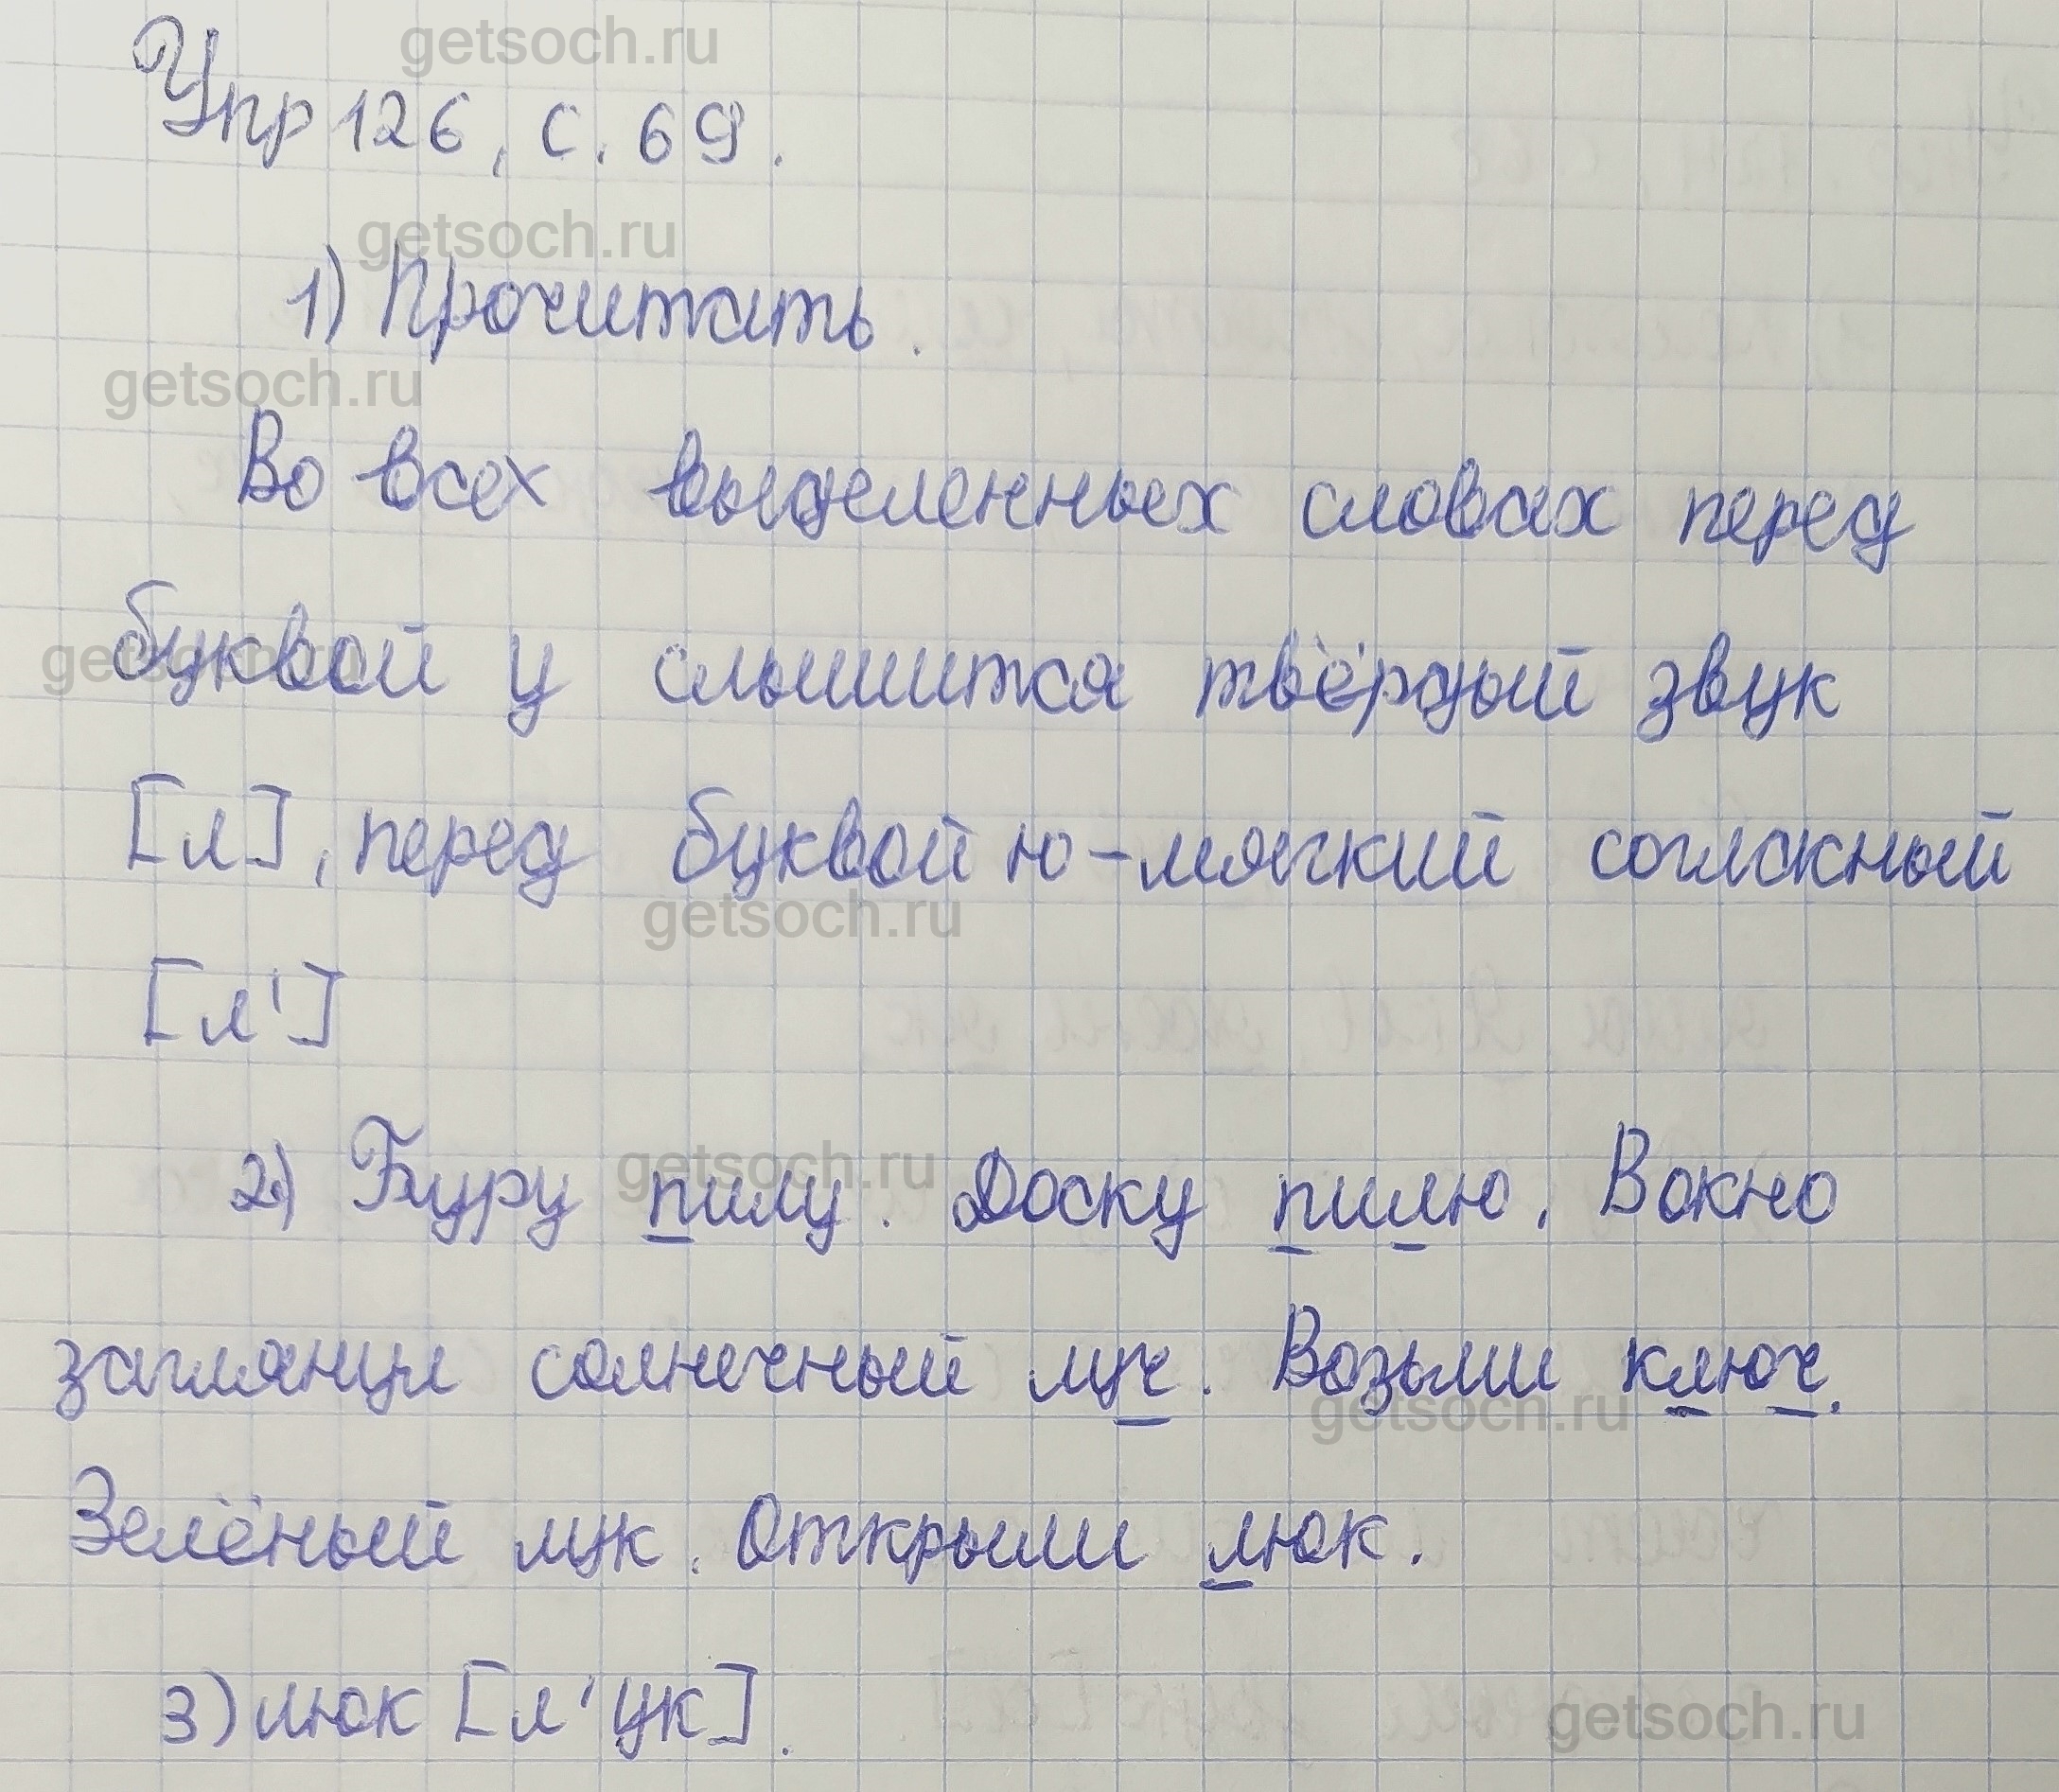 getsoch.ru
Упр 126, с. 69.
getsoch.ru
1) Прочитать.
getsoch.ru
Во всех выделенных словах перед
буквой у слышится твёрдый звук
[л], перед буквой ю - мягкий согласный
getsoch.ru
[л']
getsoch.ru
2) Беру пилу. Доску пилю. В окно
заглянул солнечный луч. Возьми ключ.
getsoch.ru
Зелёный лук. Открыли люк.
3) люк [л'ук].
getsoch.ru